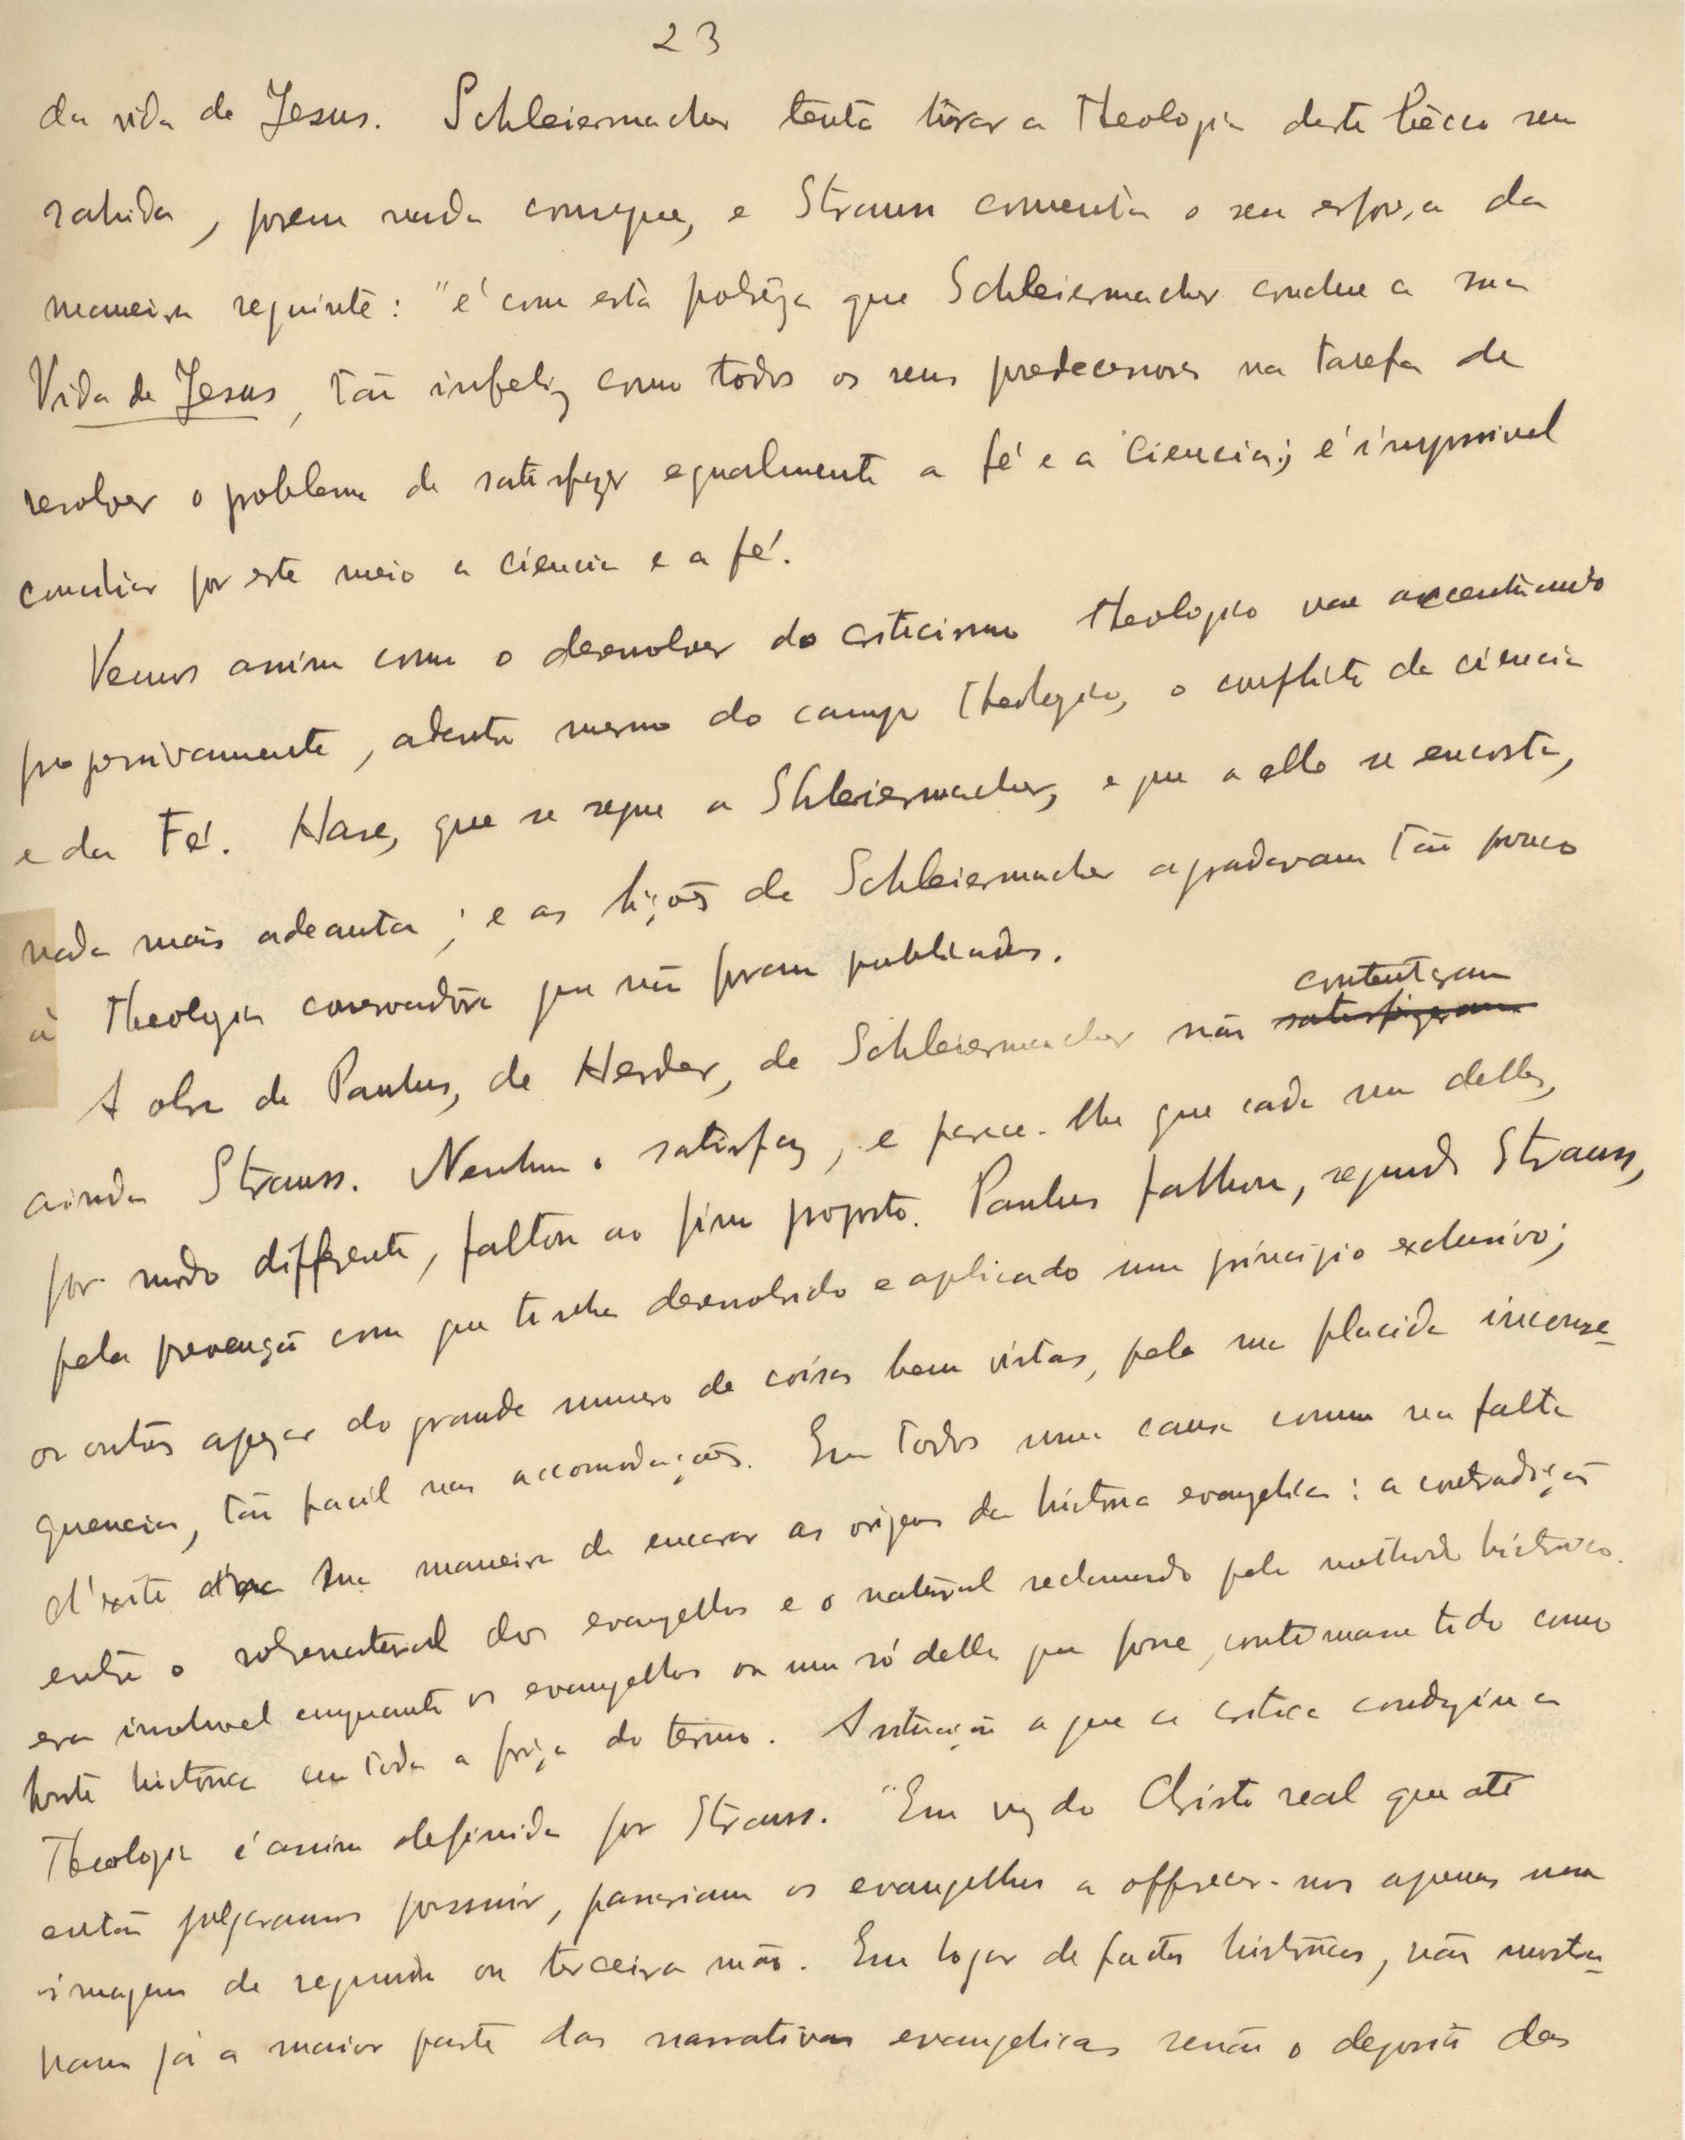 23
da vida de Jesus. Schleiermacher tenta livrar a Theologia deste bêcco sem
sahida, porem nada consegue, e Strauss comenta o seu esforço da
maneira seguinte: "é com esta pobrêza que Schleiermacher conclue a sua
Vida de Jesus, tão infeliz como todos os seus predecessores na tarefa de
resolver o problema de satisfazer egualmente a fé e a ciencia; é impossivel
conciliar por este meio a ciencia e a fé.
Vemos assim como o desenvolver do criticismo theologico vae accentuando
progressivamente, adentro mesmo do campo theologico, o conflicto da ciencia
e da Fé. Hase, que se segue a Schleiermacher, e que a elle se encosta,
nada mais adeanta; e as lições de Schleiermacher agradavam tão pouco
à Theologia conservadôra que não foram publicadas.
A obra de Paulus, de Herder, de Schleiermacher não satisfizeram contentaram
ainda Strauss. Nenhum o satisfaz, e parece-lhe que cada um delles,
por modo differente, faltou ao fim proposto. Paulus falhou, segundo Strauss,
pela prevenção com que tinha desenvolvido e aplicado um principio exclusivo;
os outros apezar do grande numero de coisas bem vistas, pela sua placida inconse-
quencia, tão facil nas accomodações. Em todos uma causa comum
sua maneira de encarar as origens da historia evangelica: a contradição
entre o sobrenatural dos evangelhos e o natural reclamado pelo methodo historico.
era insoluvel emquanto os evangelhos ou um só delles que fosse, continuasse tido como
fonte historica em toda a força do termo. A situação a que a critica conduzira a
Theologia é assim definida por Strauss. "Em vez do Christo real que até
então julgaramos possuir, passariam os evangelhos a offrecer-nos apenas uma
imagem de segunda ou terceira mão. Em logar de factos historicos, não mostra-
vam já a maior parte das narrativas evangelicas senão o deposito das